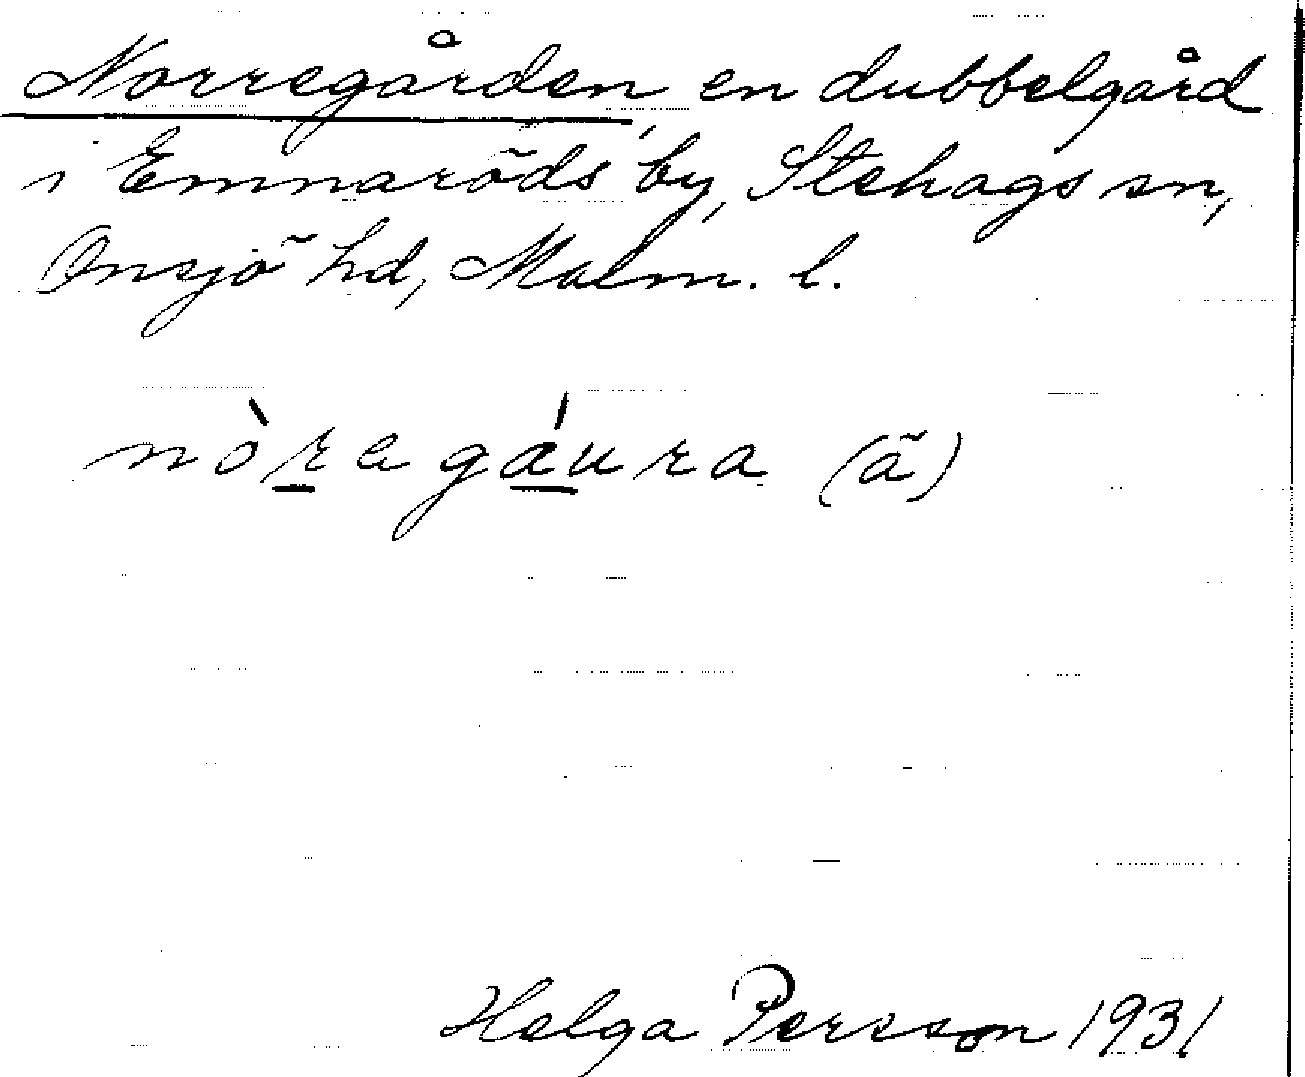 Norregården, en dubbelgård
i Emmaröds by, Stehags sn,
Onsjö hd, Malm. l.
nòra gáura (ã)
Helga Persson 1931